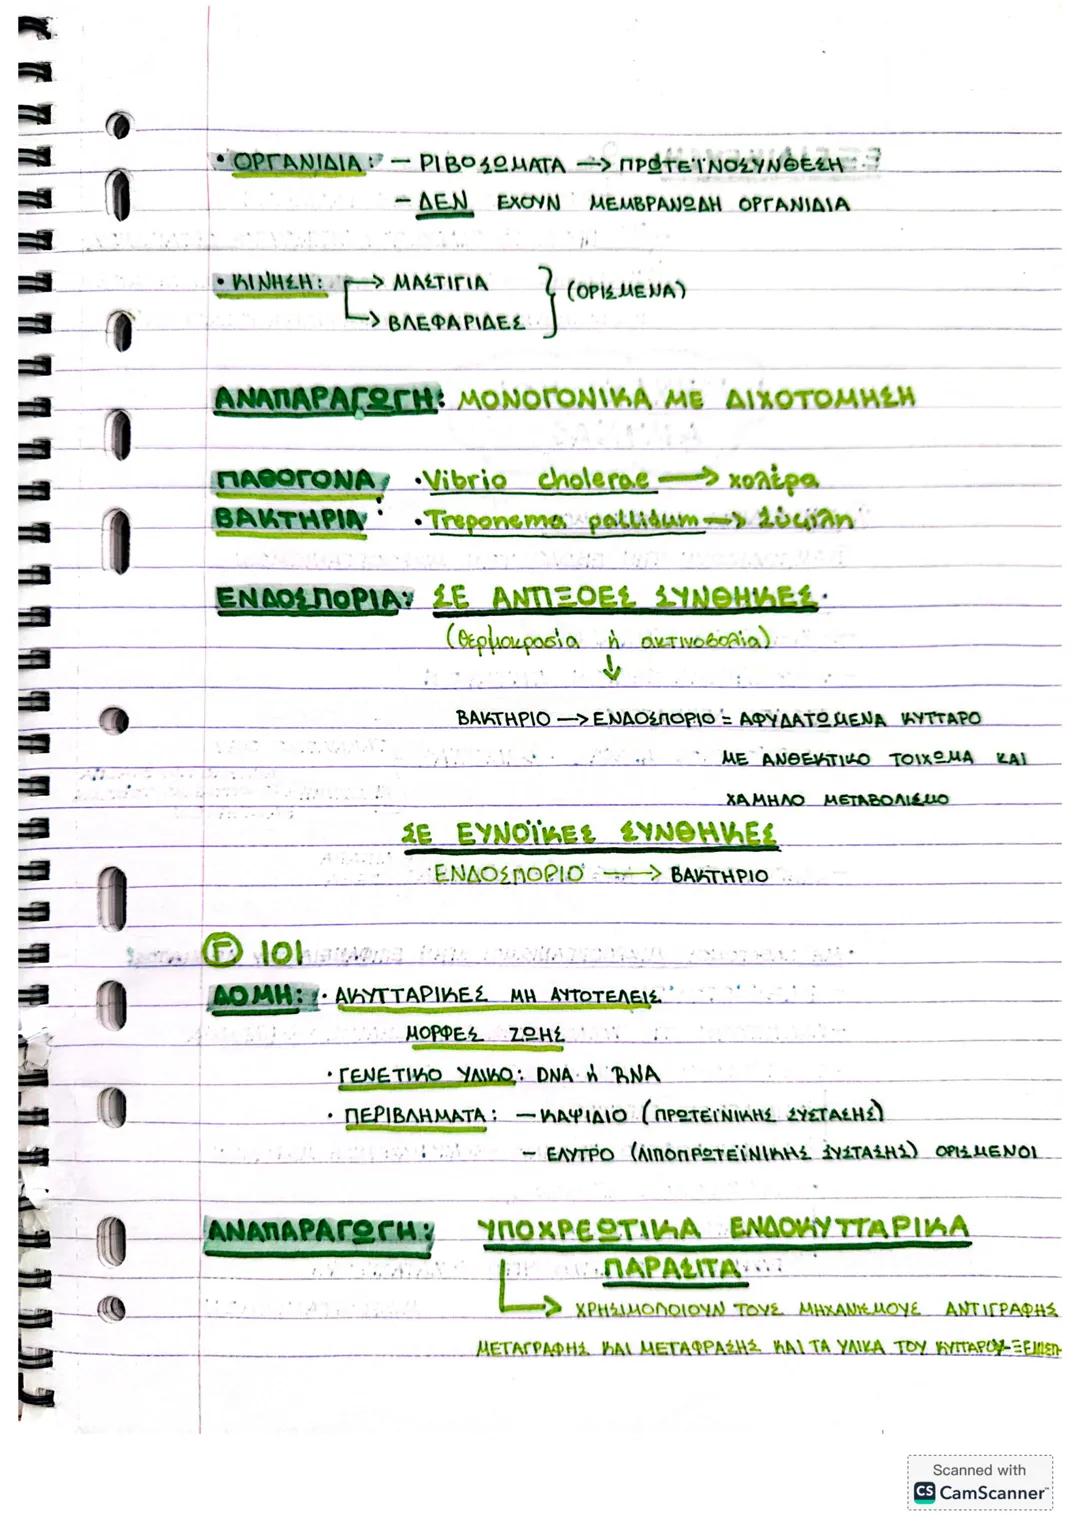 • ΟΡΓΑΝΙΔΙΑ: – ΡΙΒΟΣΩΜΑΤΑ → ΠΡΩΤΕΪΝΟΣΥΝΘΕΣΗ
– ΔΕΝ ΕΧΟΥΝ ΜΕΜΒΡΑΝΩΔΗ ΟΡΓΑΝΙΔΙΑ
• ΚΙΝΗΣΗ: → ΜΑΣΤΙΓΙΑ } (ΟΡΙΣΜΕΝΑ)
→ ΒΛΕΦΑΡΙΔΕΣ
ΑΝΑΠΑΡΑΓΩΓΗ: ΜΟΝΟΓΟΝΙΚΑ ΜΕ ΔΙΧΟΤΟΜΗΣΗ
ΠΑΘΟΓΟΝΑ • Vibrio cholerae → χολέρα
ΒΑΚΤΗΡΙΑ: • Treponema pallidum → Σύφιλη
ΕΝΔΟΣΠΟΡΙΑ: ΣΕ ΑΝΤΙΞΟΕΣ ΣΥΝΘΗΚΕΣ.
(θερμοκρασία ή ακτινοβολία)
↓
ΒΑΚΤΗΡΙΟ → ΕΝΔΟΣΠΟΡΙΟ = ΑΦΥΔΑΤΩΜΕΝΑ ΚΥΤΤΑΡΟ
ΜΕ ΑΝΘΕΚΤΙΚΟ ΤΟΙΧΩΜΑ ΚΑΙ
ΧΑΜΗΛΟ ΜΕΤΑΒΟΛΙΣΜΟ
ΣΕ ΕΥΝΟΪΚΕΣ ΣΥΝΘΗΚΕΣ
ΕΝΔΟΣΠΟΡΙΟ → ΒΑΚΤΗΡΙΟ
Γ ΙΟΙ
ΔΟΜΗ: • ΑΚΥΤΤΑΡΙΚΕΣ ΜΗ ΑΥΤΟΤΕΛΕΙΣ
ΜΟΡΦΕΣ ΖΩΗΣ
• ΓΕΝΕΤΙΚΟ ΥΛΙΚΟ: DNA ή RNA
• ΠΕΡΙΒΛΗΜΑΤΑ: – ΚΑΨΙΔΙΟ (ΠΡΩΤΕΪΝΙΚΗΣ ΣΥΣΤΑΣΗΣ)
– ΕΛΥΤΡΟ (ΛΙΠΟΠΡΩΤΕΪΝΙΚΗΣ ΣΥΣΤΑΣΗΣ) ΟΡΙΣΜΕΝΟΙ
ΑΝΑΠΑΡΑΓΩΓΗ: ΥΠΟΧΡΕΩΤΙΚΑ ΕΝΔΟΚΥΤΤΑΡΙΚΑ
ΠΑΡΑΣΙΤΑ
→ ΧΡΗΣΙΜΟΠΟΙΟΥΝ ΤΟΥΣ ΜΗΧΑΝΙΣΜΟΥΣ ΑΝΤΙΓΡΑΦΗΣ
ΜΕΤΑΓΡΑΦΗΣ ΚΑΙ ΜΕΤΑΦΡΑΣΗΣ ΚΑΙ ΤΑ ΥΛΙΚΑ ΤΟΥ ΚΥΤΤΑΡΟΥ-
Scanned with
CS CamScanner